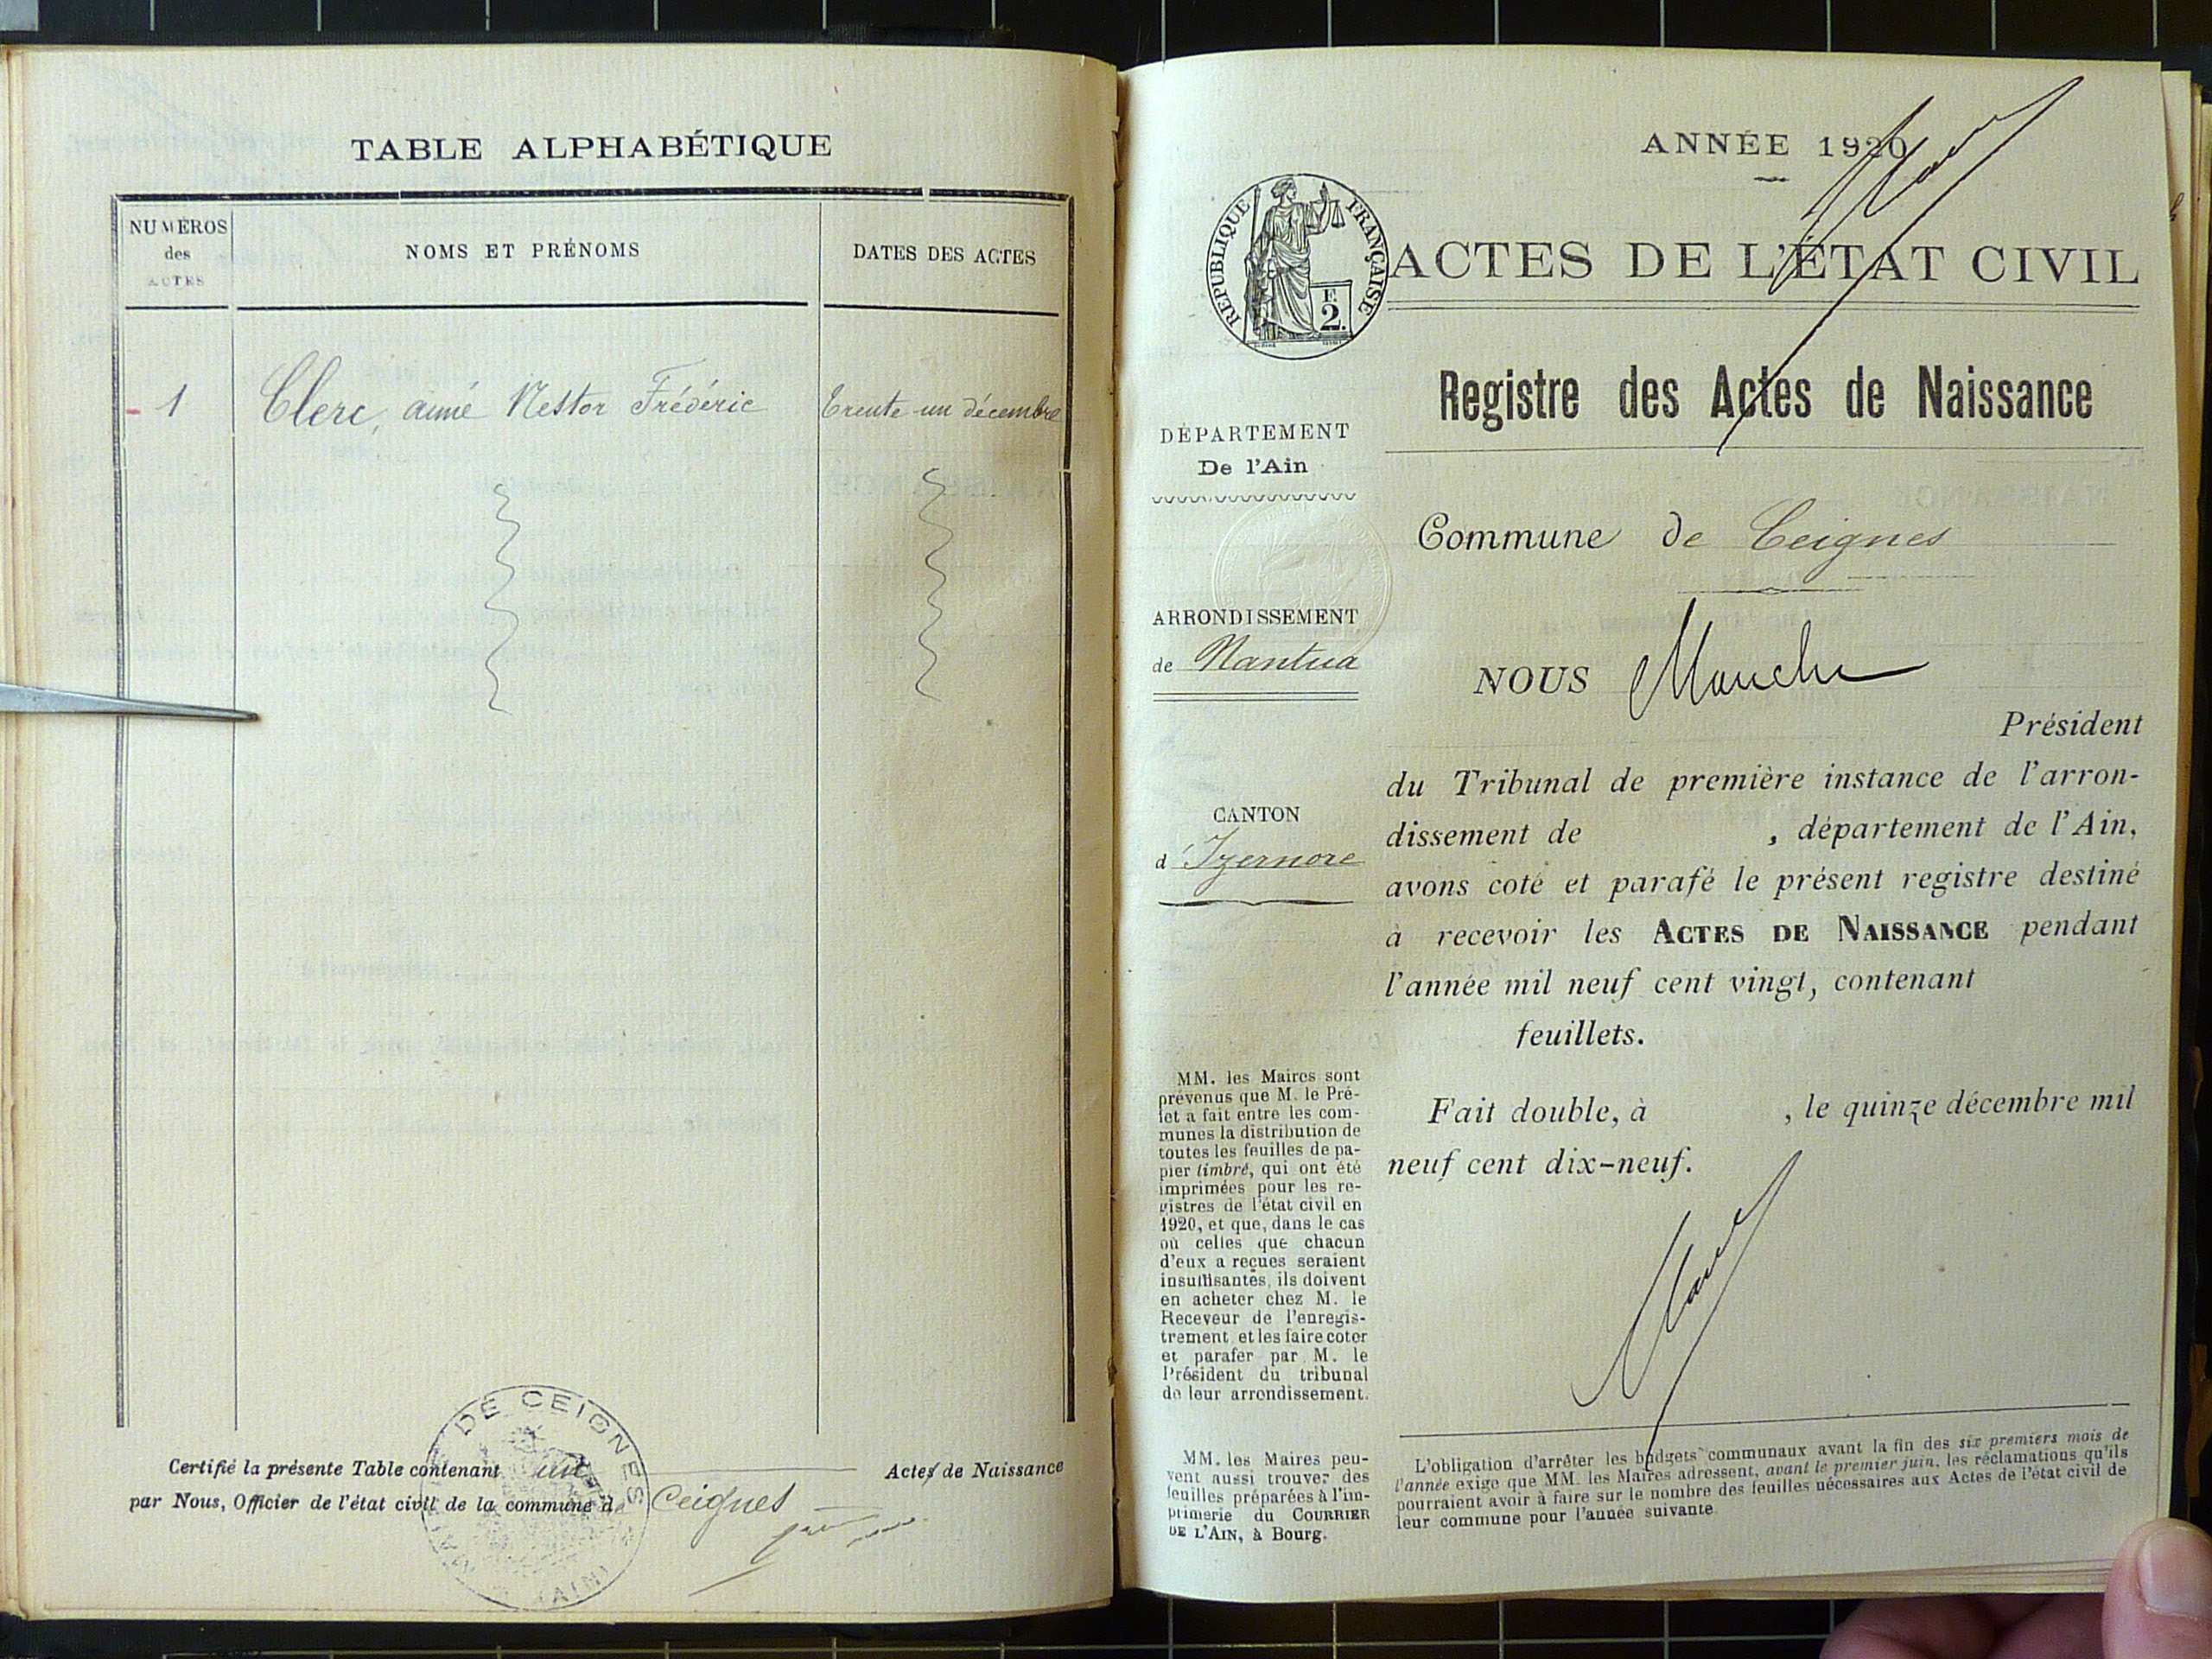 TABLE ALPHABÉTIQUE
NUMÉROS
des
ACTES
NOMS ET PRÉNOMS
DATES DES ACTES
1 Clerc, aimé Nestor Frédéric trente-un décembre
Certifié la présente Table contenant un Actes de Naissance
par Nous, Officier de l'état civil de la commune de Ceignes
DE CEIGNES
(AIN)
ANNÉE 1920
RÉPUBLIQUE FRANÇAISE
2
ACTES DE L'ÉTAT CIVIL
Registre des Actes de Naissance
DÉPARTEMENT
De l'Ain
Commune de Ceignes
ARRONDISSEMENT
de Nantua
CANTON
d'Izernore
NOUS
Président
du Tribunal de première instance de l'arron-
dissement de , département de l'Ain,
avons coté et parafé le présent registre destiné
à recevoir les ACTES DE NAISSANCE pendant
l'année mil neuf cent vingt, contenant
feuillets.
Fait double, à , le quinze décembre mil
neuf cent dix-neuf.
MM. les Maires sont
prévenus que M. le Pré-
fet a fait entre les com-
munes la distribution de
toutes les feuilles de pa-
pier timbré, qui ont été
imprimées pour les re-
gistres de l'état civil en
1920, et que, dans le cas
où celles que chacun
d'eux a reçues seraient
insuffisantes, ils doivent
en acheter chez M. le
Receveur de l'enregis-
trement et les faire coter
et parafer par M. le
Président du tribunal
de leur arrondissement.
MM. les Maires peu-
vent aussi trouver des
feuilles préparées à l'im-
primerie du COURRIER
DE L'AIN, à Bourg.
L'obligation d'arrêter les budgets communaux avant la fin des six premiers mois de
l'année exige que MM. les Maires adressent, avant le premier juin, les réclamations qu'ils
pourraient avoir à faire sur le nombre des feuilles nécessaires aux Actes de l'état civil de
leur commune pour l'année suivante.